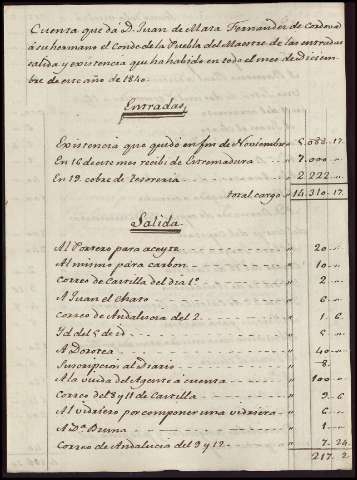 Cuenta que dá D. Juan de Mata Fernandez de Cordova
á su hermano el Conde de la Puebla del Maestre de las entradas
salida y existencia que ha habido en todo el mes de Diciem-
bre de este año de 1840.
Entradas
Existencia que quedó en fin de Noviembre " 5.088..17.
En 16 de este mes recibi de Extremadura " 7.000..
En 19. cobré de Tesoreria " 2.222..
total cargo " 14.310..17.
Salida
Al Portero para aceyte " 20..
Al mismo para carbon " 10..
Correo de Castilla del dia 1º " 2..
A Juan el Charo " 6..
Correo de Andalucia del 2. " 1..6
Yd del 5 de id " 5..
A Dorotea " 40..
Suscripcion al Diario " 8..
A la viuda del Agente á cuenta " 100..
Correo del 8 y 11 de Castilla " 9..6
Al vidriero por componer una vidriera " 6..
A Dª Bruna " 1..
Correo de Andalucia del 9 y 12 " 7..24.
217..2